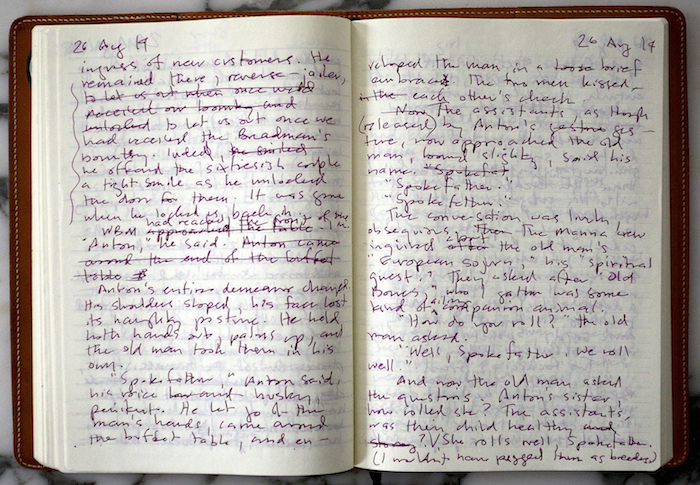 26 Aug 14
ingress of new customers. He
remained there, reverse-jailer,
to let us out when once we'd
received our bounty and
unlocked to let us out once we
had received the Breadman's
bounty. Indeed, he smiled
he offered the sixtiesish couple
a tight smile as he unlocked
the door for them. It was gone
when he locked it back
had reached the front of the line.
WBM approached the table.
"Anton," he said. Anton came
around the end of the buffet
table
Anton's entire demeanor changed.
His shoulders sloped, his face lost
its haughty posture. He held
both hands out, palms up, and
the old man took them in his
own.
"Spokefather," Anton said,
his voice low and husky,
penitent. He let go of the
man's hands, came around
the buffet table, and en-
26 Aug 14
veloped the man in a loose brief
embrace. The two men kissed
in the each other's cheek.
Now the assistants, as though
(released) by Anton's gesture ges-
ture, now approached the old
man, bowed slightly, said his
name. "Spokefat
"Spokefather."
"Spokefather."
The conversation was lively,
obsequious. Then The Manna crew
inquired after the old man's
"European sojurn," his "spiritual
quest." They asked after "Old
Bones," who I gather was some
kind of companion animal.
"How do you roll?" the old
man asked.
"Well, Spokefather. We roll
well."
And now the old man asked
the questions. Anton's sister,
how rolled she? The assistants,
was their child healthy and
? She rolls well Spokefather.
(I wouldn't have pegged them as breeders)